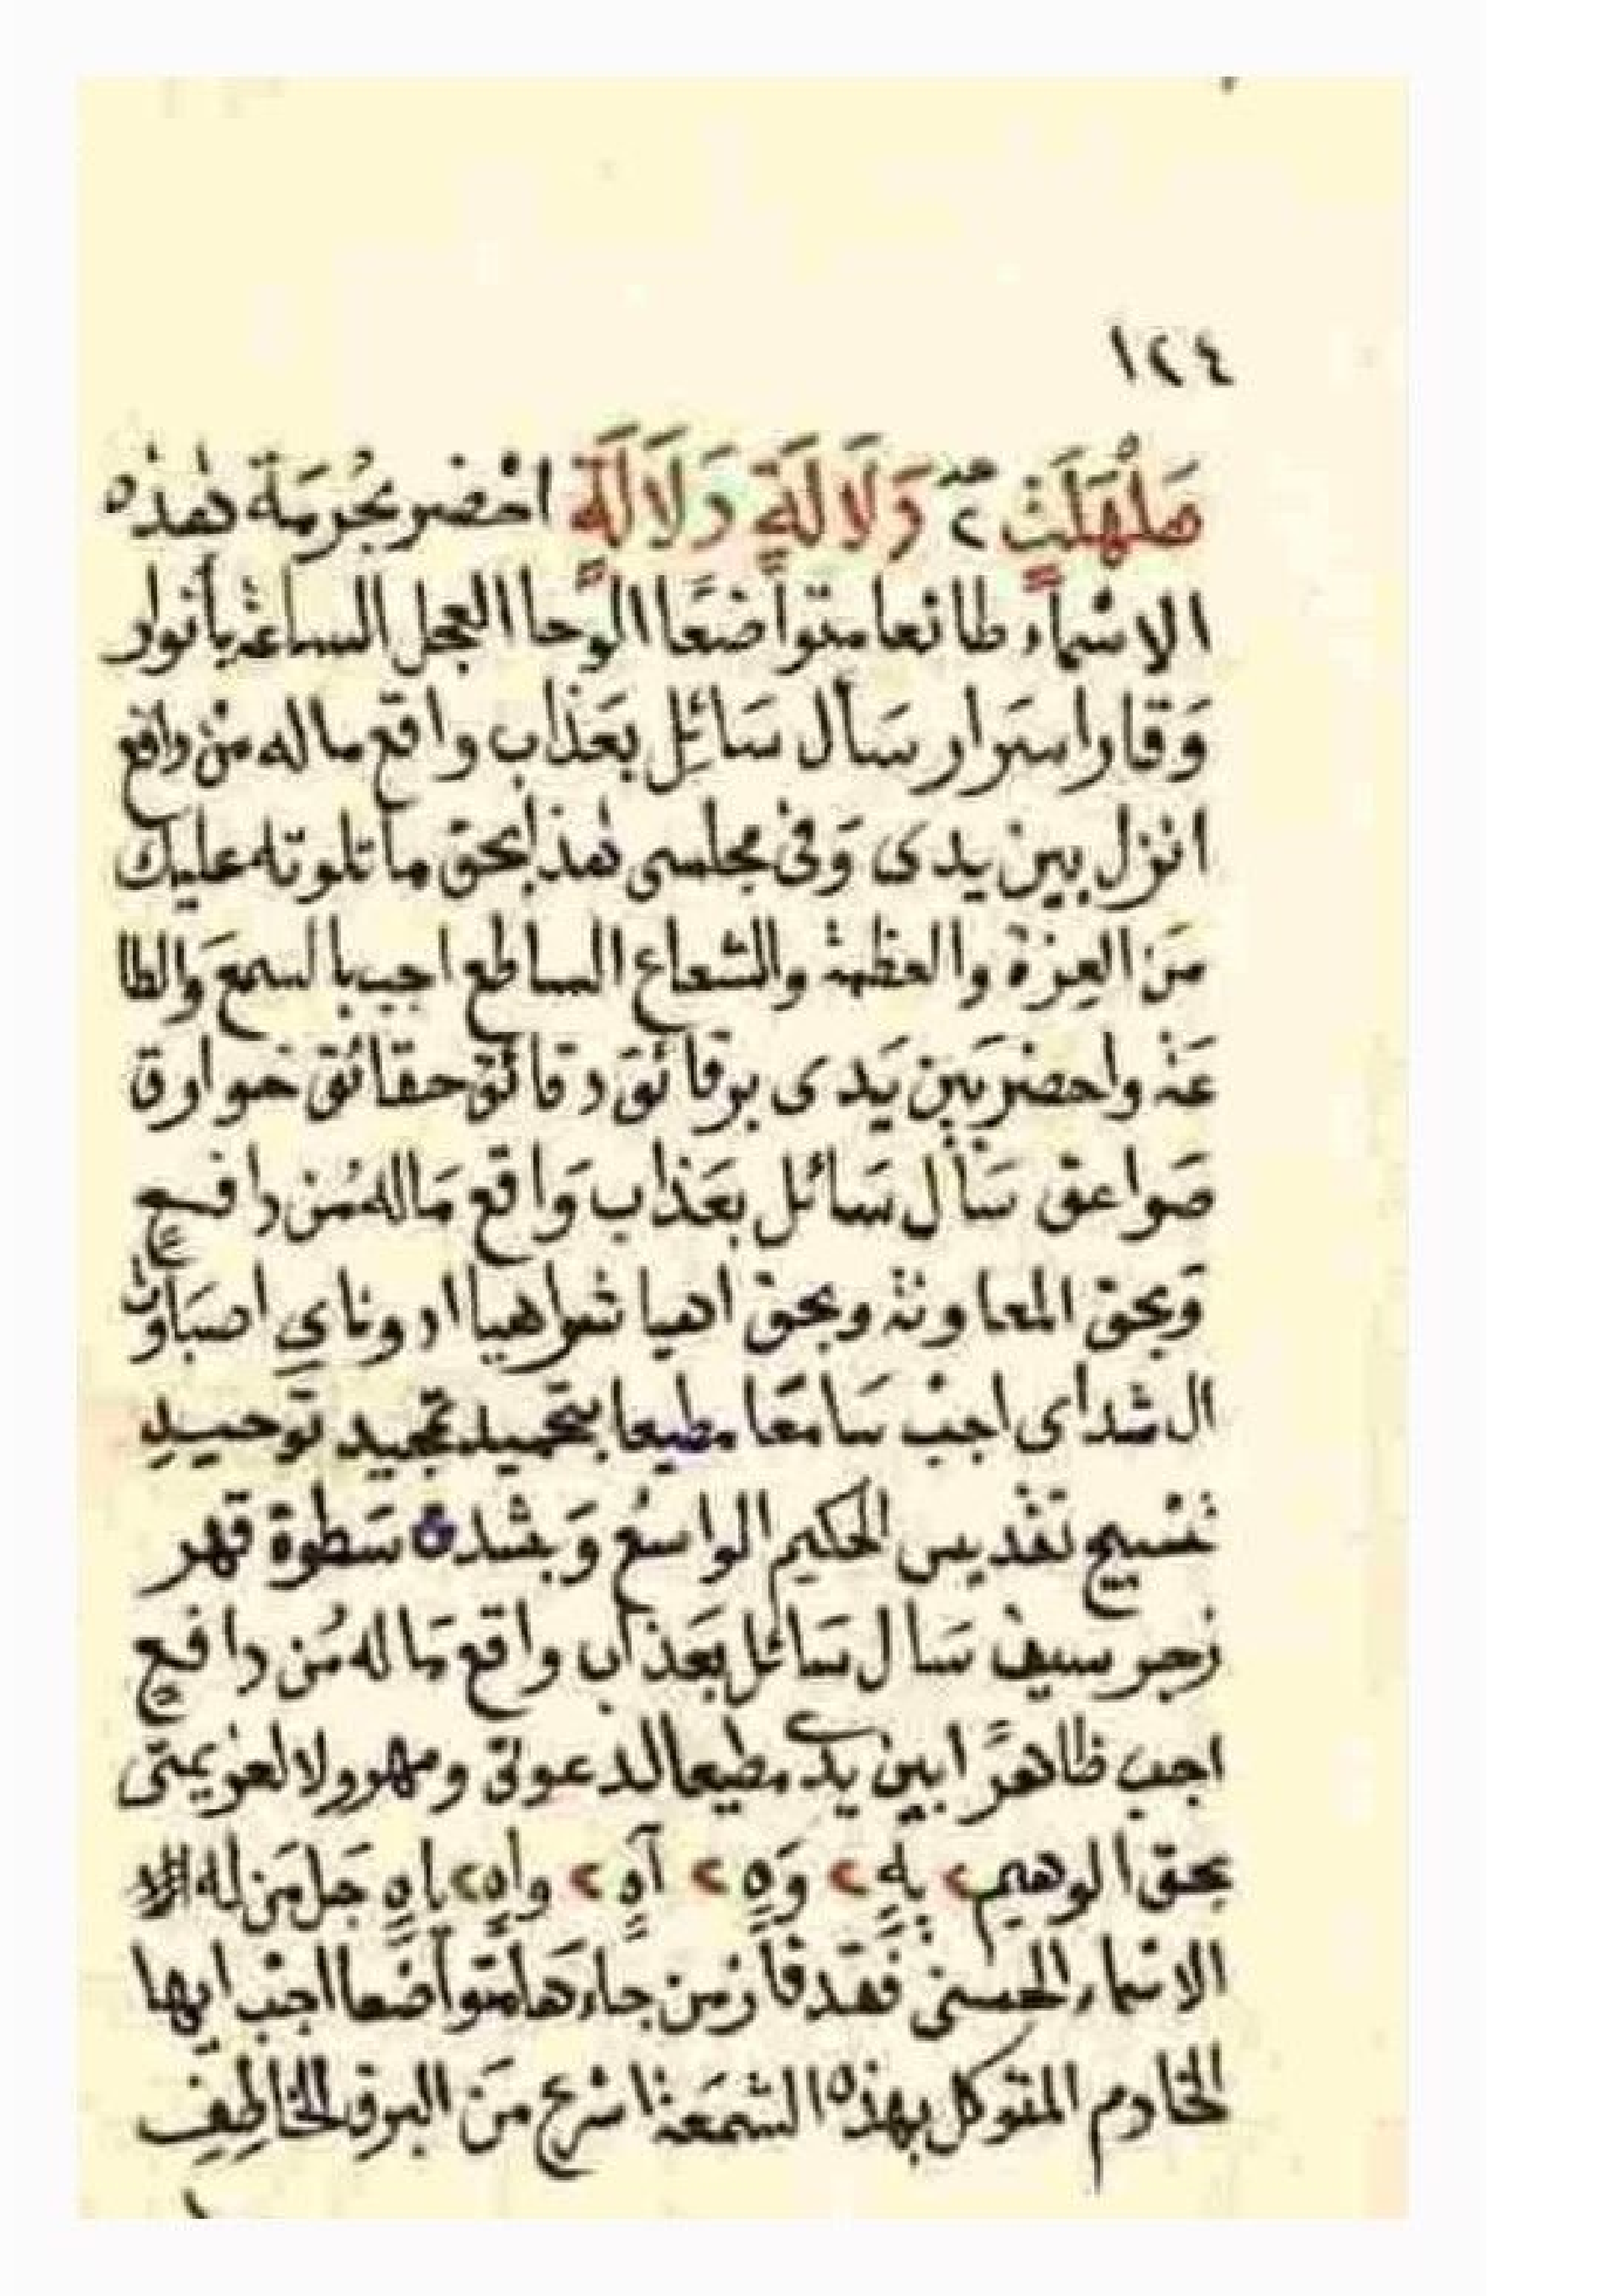 ١٢٤
صَلْهَلَتٍ ٢ دَلَالَةٍ دَلَالَةٍ احضر بحُرمَة هذه
الاسْمآء طائعا متواضعًا الوحا العجل الساعة بأنوار
وَقار اسرَار سَأل سَائِل بعَذاب واقع ماله منْ دافع
انزل بين يدى وَفى مجلسى هذا بحق ما تلوته عليك
مَن العِزة والعظمة والشعاع الساطع اجب بالسمع وَالطا
عَة واحضر بَين يَدى برقائق دقائق حقائق خوارق
صَواعق سَأل سَائل بعَذاب وَاقع مَاله مُن دافع
وَبحق المعاونة وبحق اهيا شراهيا ادوناي اصبَاوُت
ال شدأى اجبْ سَامعًا مطيعا بتحميد تمجيد توحيدِ
تسْبيح تقديس الحكيم الواسُع وَبشدة سَطوة قهر
زجر سيف سَال سَائل بعَذاب واقع مَا له مُن دافعٍ
اجب ظاهرًا بين يدي مطيعا لدعوتى ومهرولا لعزيمتى
بحق الوهيم ٢ بِهٍ ٢ وَهٍ ٢ آهٍ ٢ واهٍ ٢ ياهٍ جَل مَن له
الاسْماء الحسنى فقد فاز من جاءَها متواضعا اجبْ ايها
الخادم المتوكل بهذه الشمَعة اسْرع مَن البرق الخاطِفِ